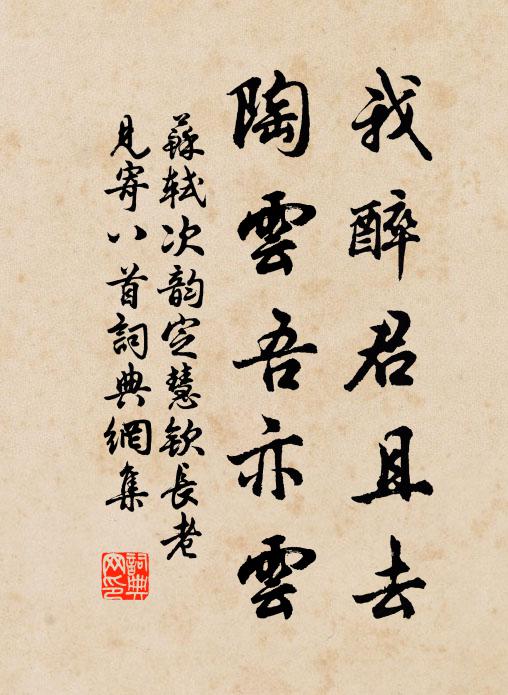 我醉君且去
陶雲吾亦雲
蘇軾次韵定慧欽長老
見寄八首詞典網集
詞典
网印